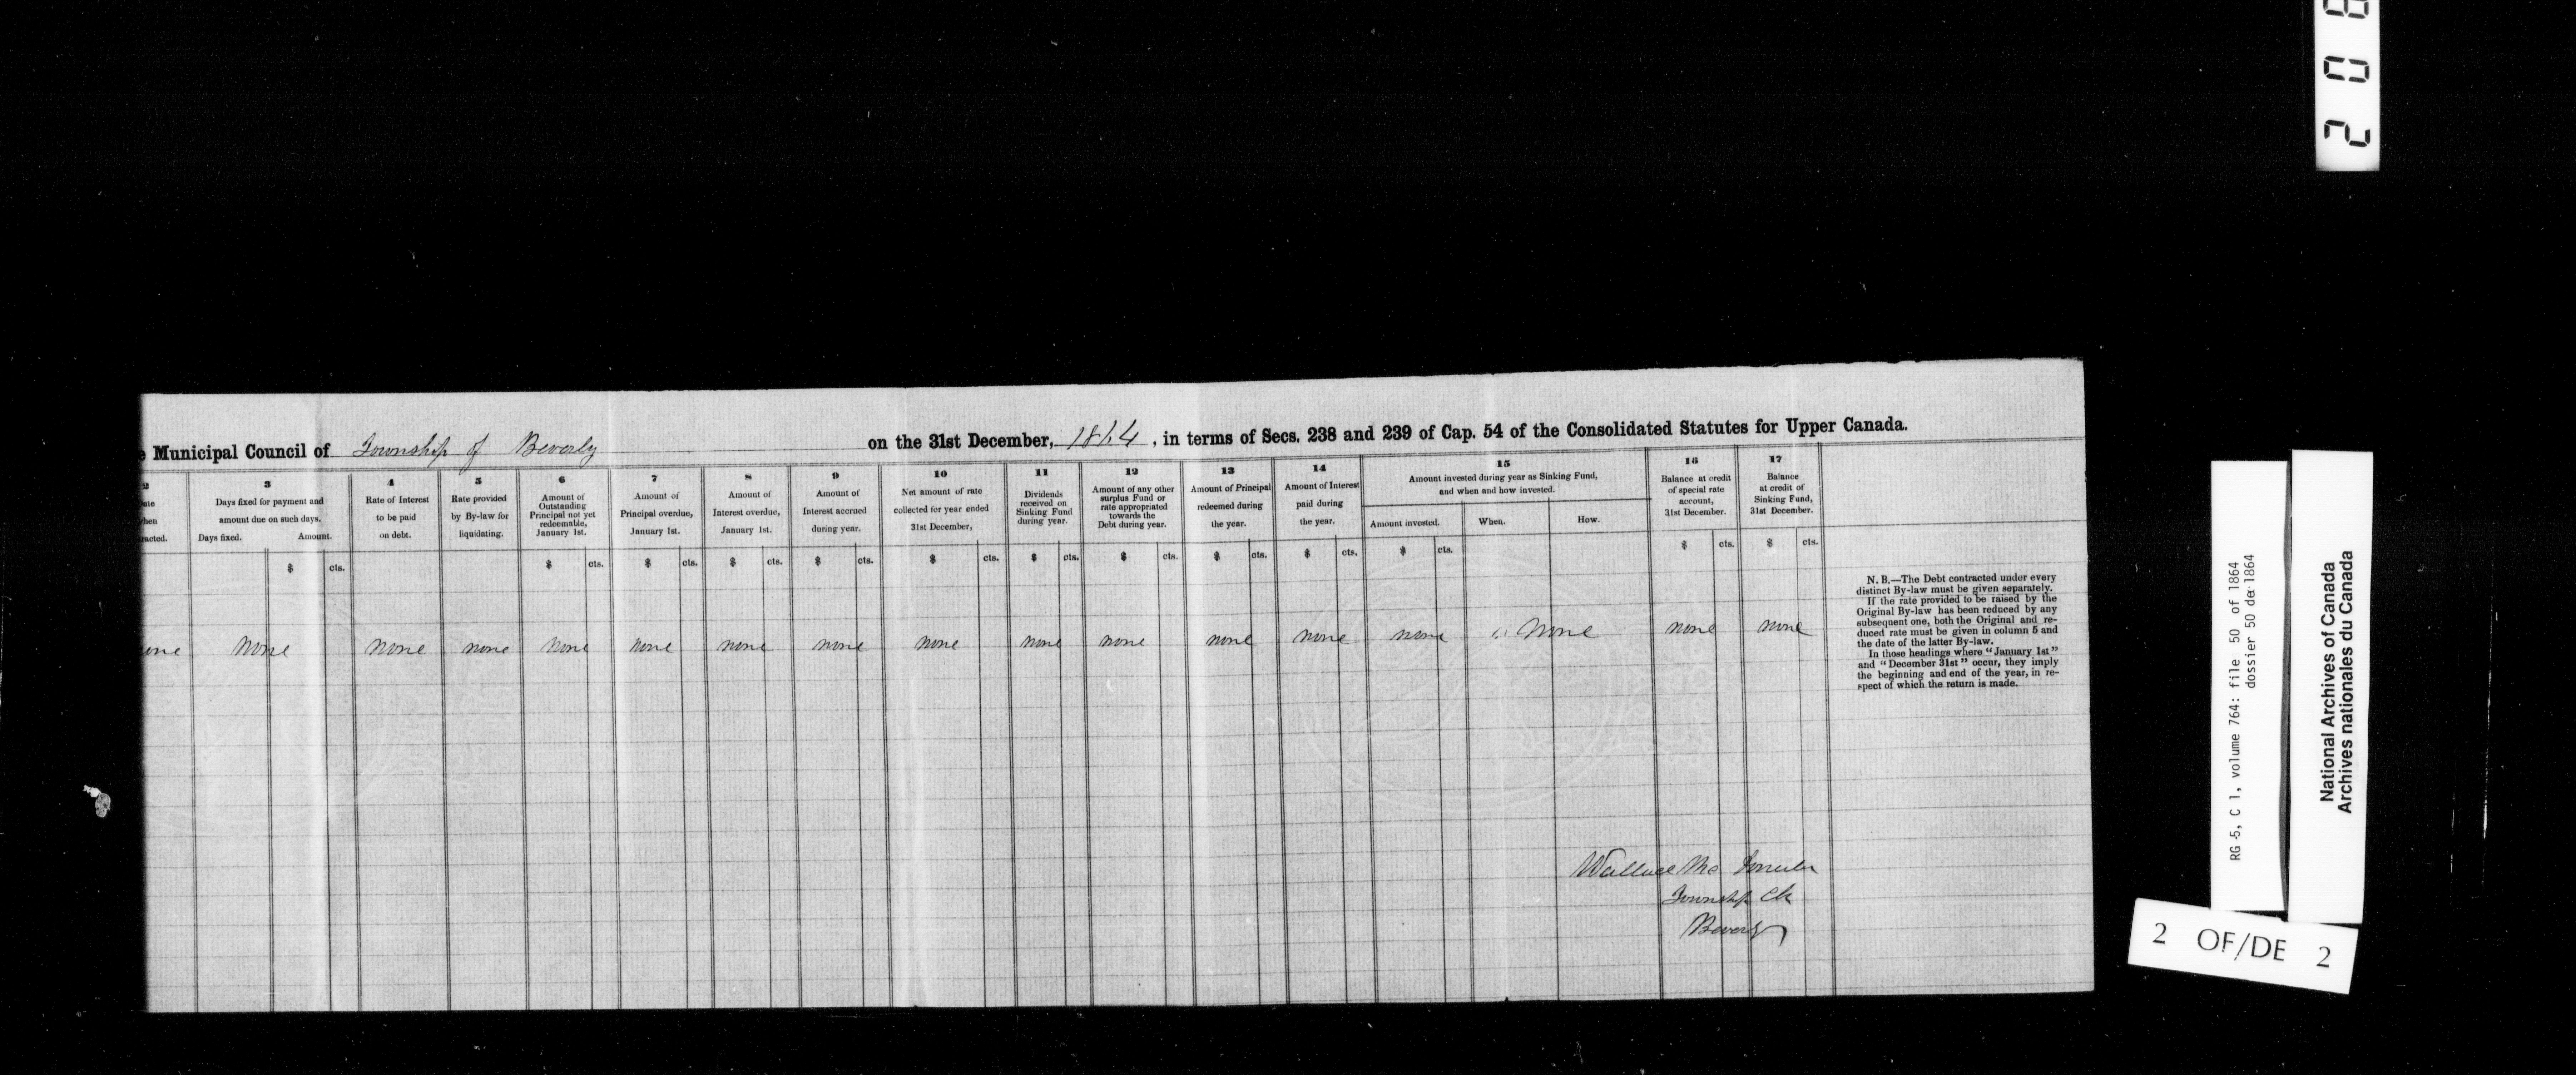 e Municipal Council of Township of Beverly on the 31st December, 1864, in terms of Secs. 238 and 239 of Cap. 54 of the Consolidated Statutes for Upper Canada.
2
Date
when
racted.
3
Days fixed for payment and
amount due on such days.
Days fixed. Amount.
4
Rate of Interest
to be paid
on debt.
5
Rate provided
by By-law for
liquidating.
6
Amount of
Outstanding
Principal not yet
redeemable,
January 1st.
7
Amount of
Principal overdue,
January 1st.
8
Amount of
Interest overdue,
January 1st.
9
Amount of
Interest accrued
during year.
10
Net amount of rate
collected for year ended
31st December,
11
Dividends
received on
Sinking Fund
during year.
12
Amount of any other
surplus Fund or
rate appropriated
towards the
Debt during year.
13
Amount of Principal
redeemed during
the year.
14
Amount of Interest
paid during
the year.
15
Amount invested during year as Sinking Fund,
and when and how invested.
Amount invested. When. How.
16
Balance at credit
of special rate
account,
31st December.
17
Balance
at credit of
Sinking Fund,
31st December.
$ cts. $ cts. $ cts. $ cts. $ cts. $ cts. $ cts. $ cts. $ cts. $ cts. $ cts. $ cts. $ cts.
one None none none none none none none none none none none none none None none none
N. B.—The Debt contracted under every
distinct By-law must be given separately.
If the rate provided to be raised by the
Original By-law has been reduced by any
subsequent one, both the Original and re-
duced rate must be given in column 5 and
the date of the latter By-law.
In those headings where "January 1st"
and "December 31st" occur, they imply
the beginning and end of the year, in re-
spect of which the return is made.
Wallace Mc
Township Clk
Beverly
RG 5, C 1, volume 764: file 50 of 1864
dossier 50 de 1864
National Archives of Canada
Archives nationales du Canada
2 OF/DE 2
2 0